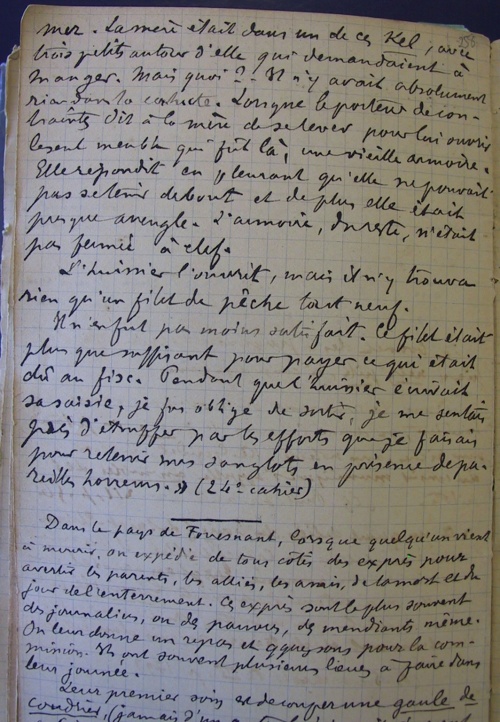 mer. La mère était dans un de ces Kel, avec
trois petits autour d'elle qui demandaient à
manger. Mais quoi ? Il n'y avait absolument
rien dans la cahute. Lorsque le porteur de con-
traintes dit à la mère de se lever pour lui ouvrir
le seul meuble qui fût là, une vieille armoire.
Elle répondit en pleurant qu'elle ne pouvait
pas se tenir debout et de plus elle était
presque aveugle. L'armoire, du reste, n'était
pas fermée à clef.
L'huissier l'ouvrit, mais il n'y trouva
rien qu'un filet de pêche tout neuf.
Il n'en fut pas moins satisfait. Ce filet était
plus que suffisant pour payer ce qui était
dû au fisc. Pendant que l'huissier écrivait
sa saisie, je fus obligé de sortir, je me sentais
près d'étouffer par les efforts que je faisais
pour retenir mes sanglots en présence de pa-
reilles horreurs. » (24e cahier)
Dans le pays de Fouesnant, lorsque quelqu'un vient
à mourir, on expédie de tous côtés des exprès pour
avertir les parents, les alliés, les amis, de la mort et du
jour de l'enterrement. Ces exprès sont le plus souvent
des journaliers, ou des pauvres, des mendiants même.
On leur donne un repas et qques sous pour la com-
mission. Ils ont souvent plusieurs lieues à faire dans
leur journée.
Leur premier soin est de couper une gaule de
coudrier, (jamais d'un